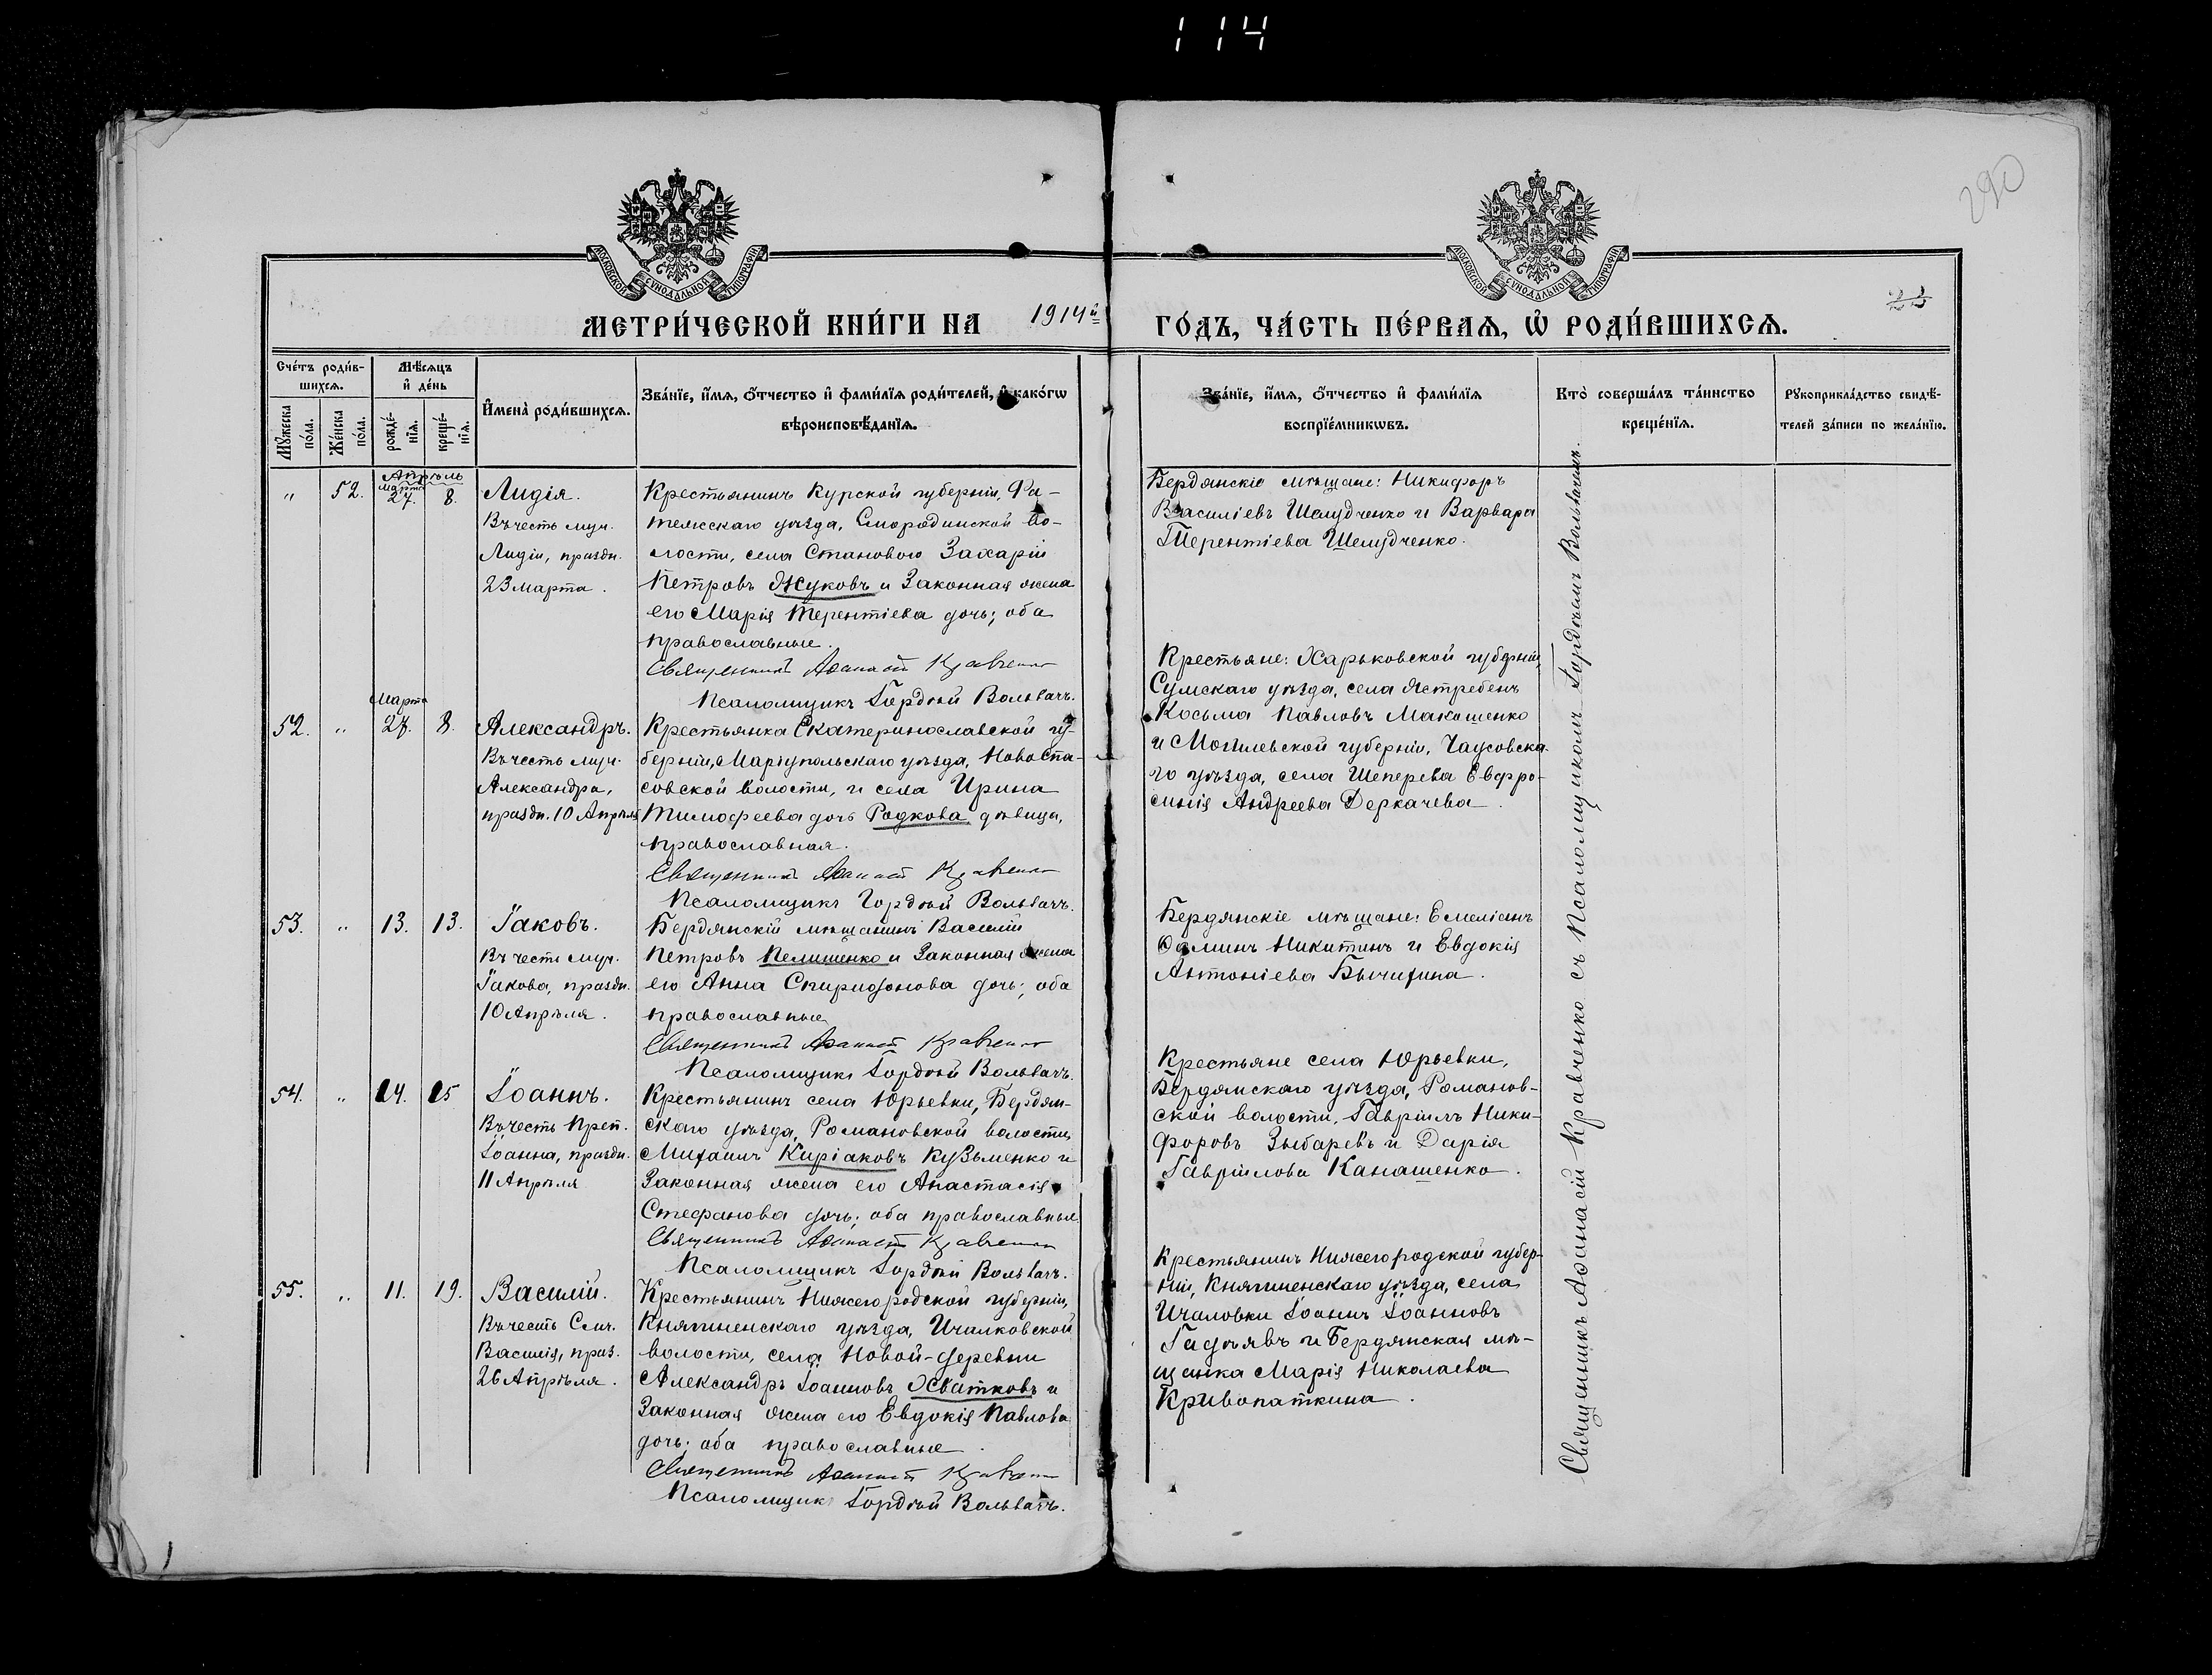 114
290
МОСКОВСКОЙ СѴНОДАЛЬНОЙ ТИПОГРАФІИ
МОСКОВСКОЙ СѴНОДАЛЬНОЙ ТИПОГРАФІИ
МЕТРИ́ЧЕСКОЙ КНИ́ГИ НА 1914й ГО́ДЪ, ЧА́СТЬ ПЕ́РВАѦ, Ѡ҆ РОДИ́ВШИХСѦ.
Сче́тъ роди́в-
шихсѧ.
Мꙋ́жеска по́ла.
Же́нска по́ла.
Мѣ́сѧцъ
и҆ де́нь
рожде́-
нїѧ.
креще́-
нїѧ.
И҆мена̀ роди́вшихсѧ.
Зва́нїе, и҆́мѧ, ѻ҆́тчество и҆ фами́лїѧ роди́телей, и҆ како́гѡ
вѣроисповѣ́данїѧ.
Зва́нїе, и҆́мѧ, ѻ҆́тчество и҆ фами́лїѧ
воспрїе́мникѡвъ.
Кто̀ соверша́лъ та́инство
креще́нїѧ.
Рꙋкоприкла́дство свидѣ́-
телей за́писи по жела́нїю.
Апрѣль
„ 52. Марта 27. 8.
Лидія.
Въ честь муч.
Лидіи, праздн.
23 марта.
Крестьянинъ Курской губерніи, Фа-
тежскаго уѣзда, Смородинской во-
лости, села Станового Захарій
Петровъ Жуковъ и Законная жена
его Марія Терентіева дочь; оба
православные.
Священникъ Аѳанасій Кравченко
Псаломщикъ Гордѣй Вольвачъ.
Бердянскіе мѣщане: Никифоръ
Василіевъ Шелудченко и Варвара
Терентіева Шелудченко.
52. „ Марта 27. 8.
Александръ.
Въ честь муч.
Александра,
праздн. 10 Апрѣля
Крестьянка Екатеринославской гу-
берніи, Маріупольскаго уѣзда, Новоспа-
совской волости, и села Ирина
Тимофеева дочь Родкова дѣвица,
православная.
Священникъ Аѳанасій Кравченко
Псаломщикъ Гордѣй Вольвачъ.
Крестьяне: Харьковской губерніи,
Сумскаго уѣзда, села Ястребень
Косьма Павловъ Макошенко
и Могилевской губерніи, Чаусовска-
го уѣзда, села Шеперева Евфро-
синія Андреева Деркачева.
53. „ 13. 13.
Іаковъ.
Въ честь муч.
Іакова, праздн.
10 Апрѣля.
Бердянскій мѣщанинъ Василій
Петровъ Пелишенко и Законная жена
его Анна Спиридонова дочь; оба
православные
Священникъ Аѳанасій Кравченко
Псаломщикъ Гордѣй Вольвачъ.
Бердянскіе мѣщане: Емеліанъ
Никитинъ и Евдокія
Антоніева Бычихина.
54. „ 24. 25
Іоаннъ.
Въ честь Преп.
Іоанна, праздн.
11 Апрѣля
Крестьянинъ села Юрьевки, Бердян-
скаго уѣзда, Романовской волости,
Михаилъ Киріаковъ Кузьменко и
Законная жена его Анастасія
Стефанова дочь; оба православные.
Священникъ Аѳанасій Кравченко
Псаломщикъ Гордѣй Вольвачъ.
Крестьяне села Юрьевки,
Бердянскаго уѣзда, Романов-
ской волости, Гавріилъ Ники-
форовъ Зыбаревъ и Дарія
Гавріилова Канашенко.
55. „ 11. 19.
Василій.
Въ честь Свщ.
Василія, праз.
26 Апрѣля.
Крестьянинъ Нижегородской губерніи,
Княгиненскаго уѣзда, Ичалковской
волости, села Новой-деревни
Александръ Іоанновъ Хватковъ и
Законная жена его Евдокія Павлова
дочь; оба православные.
Священникъ Аѳанасій Кравченко
Псаломщикъ Гордѣй Вольвачъ.
Крестьянинъ Нижегородской губер-
ніи, Княгиненскаго уѣзда, села
Ичаловки Іоаннъ Іоанновъ
и Бердянская мѣ-
щанка Марія Николаева
Кривопаткина.
Священникъ Аѳанасій Кравченко съ Псаломщикомъ Гордѣемъ Вольвачемъ.